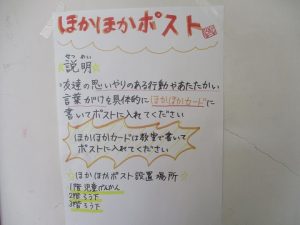 ほかほかポスト
せつめい
説明
友達の思いやりのある行動やあたたかい
言葉がけを具体的にほかほかカードに
書いてポストに入れてください
ほかほかカードは教室で書いて
ポストに入れてください
ほかほかポスト設置場所
1階 児童げんかん
2階ろう下
3階ろう下